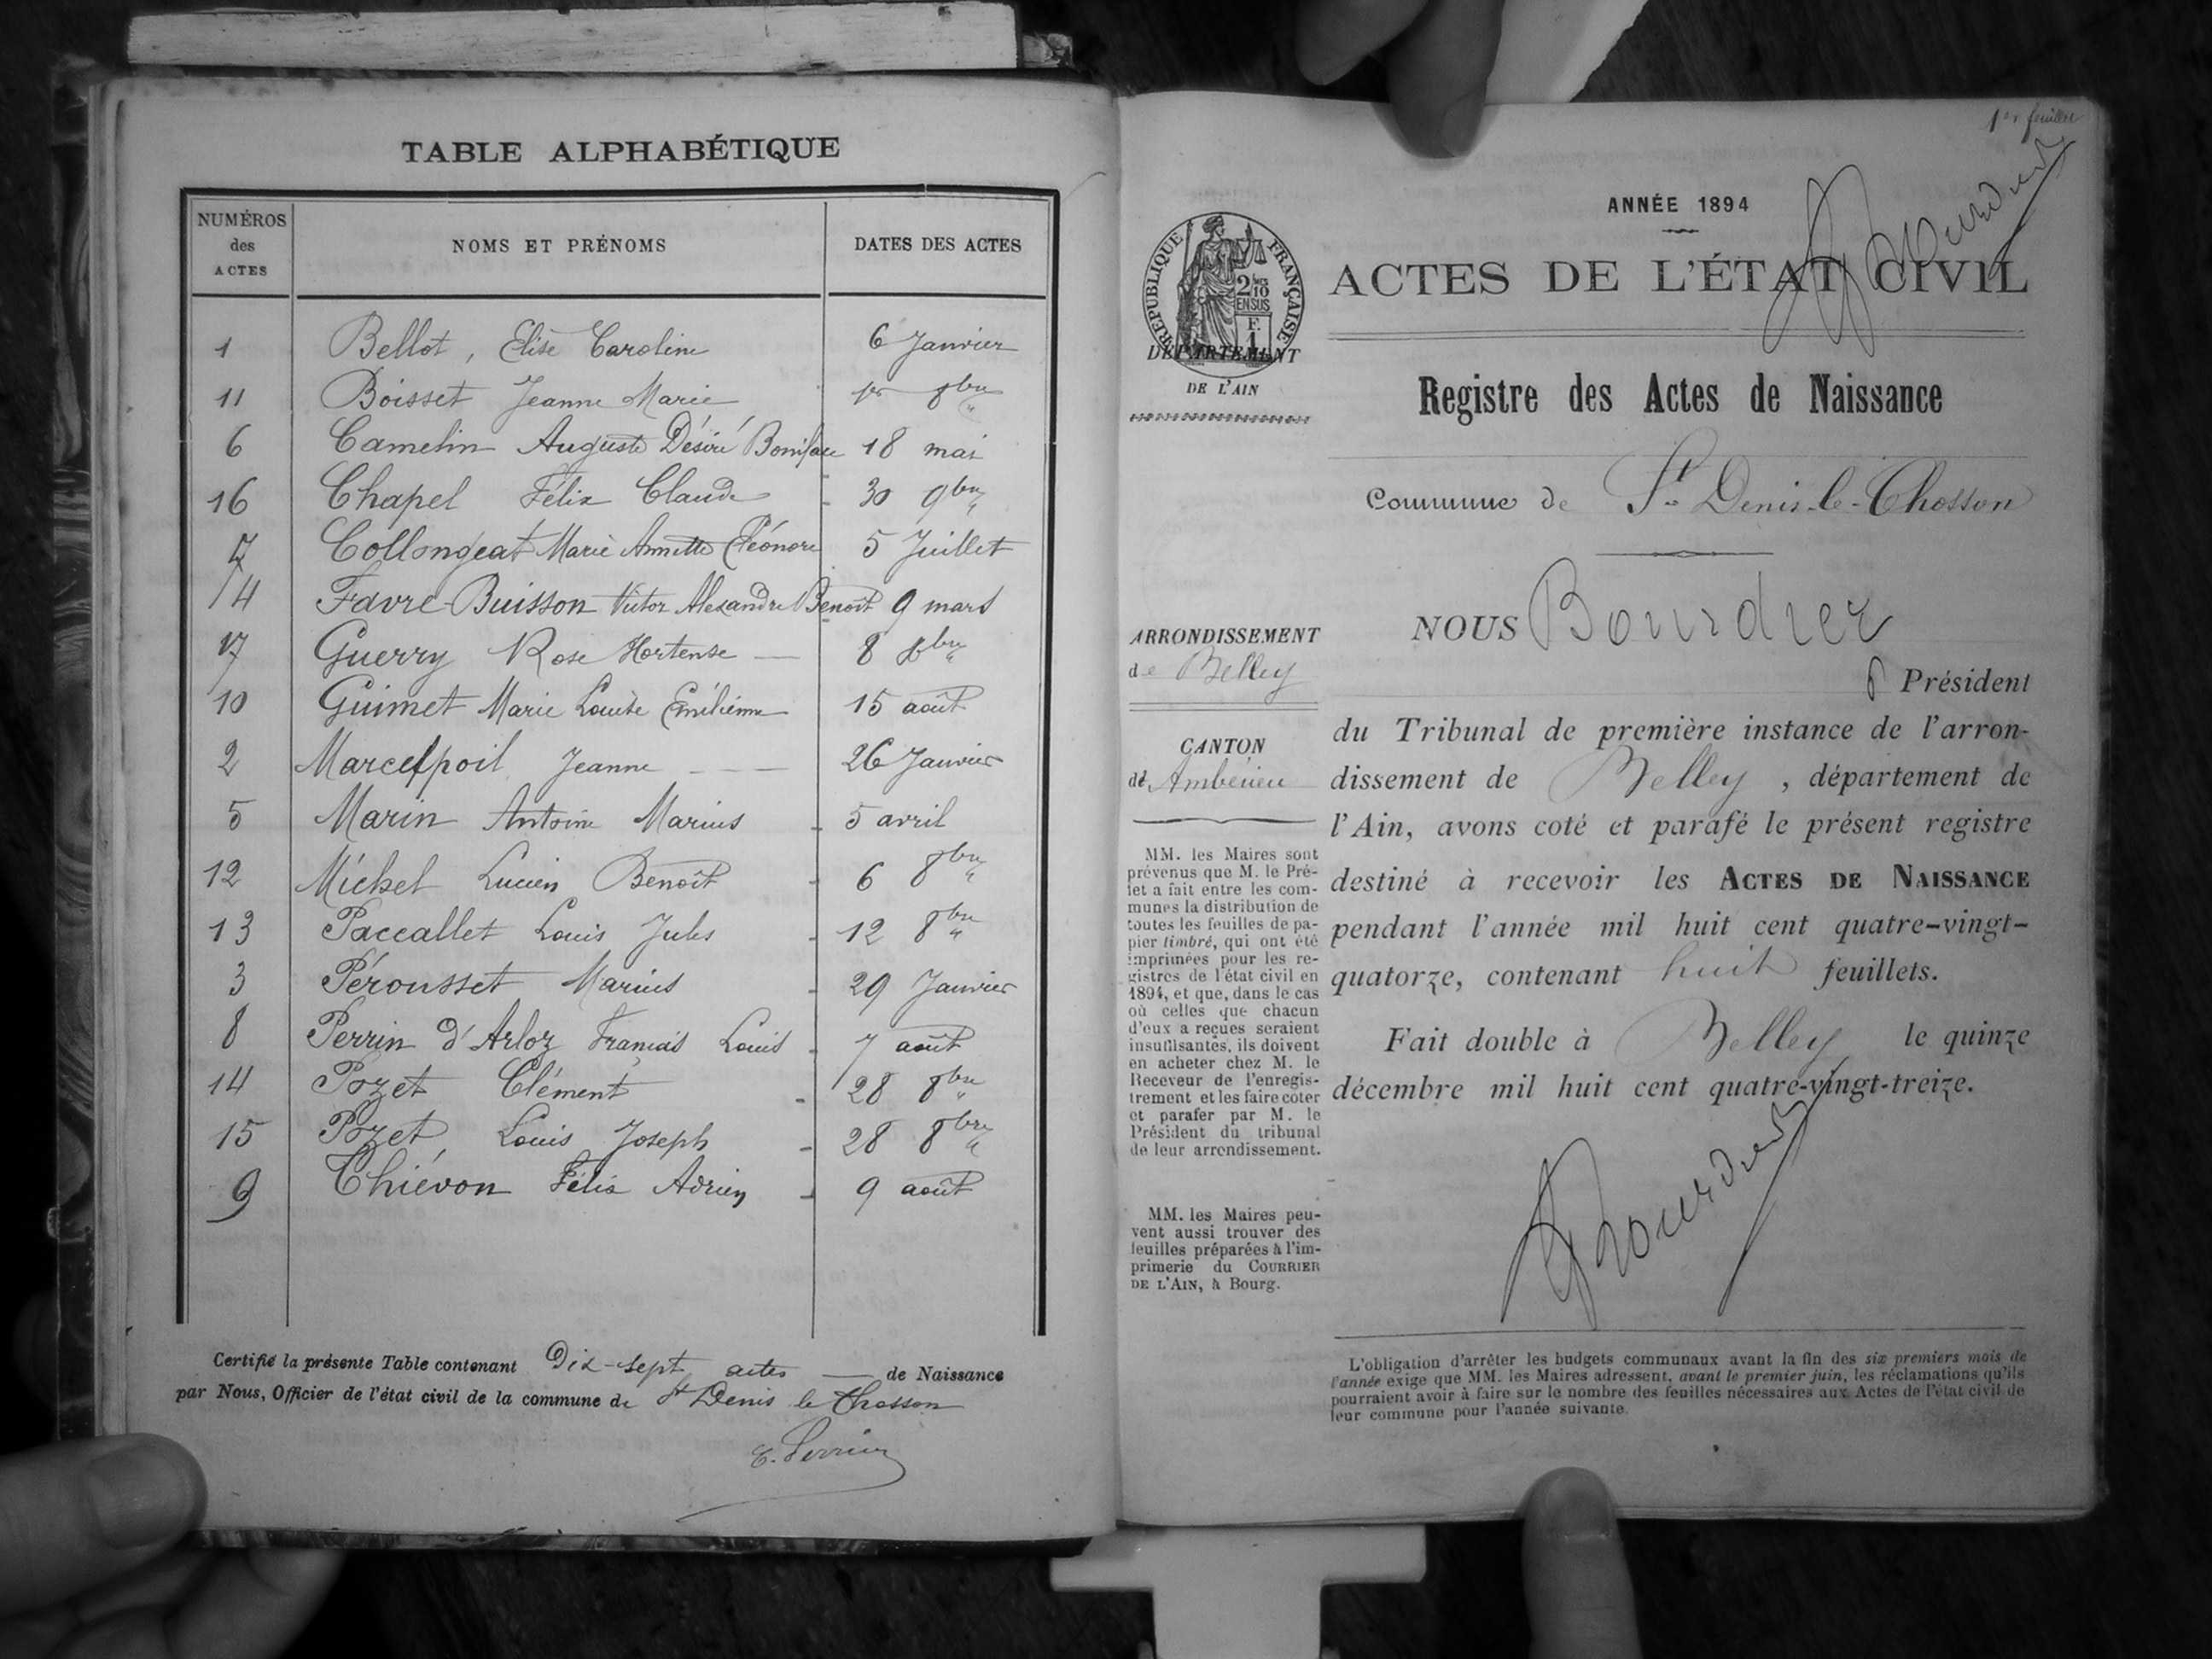 TABLE ALPHABÉTIQUE
NUMÉROS des ACTES | NOMS ET PRÉNOMS | DATES DES ACTES
1 Bellot, Elise Caroline 6 Janvier
11 Boisset Jeanne Marie 1er 8bre
6 Camelin Auguste Désiré Boniface 18 mai
16 Chapel Félix Claude 30 9bre
7 Collongeat Marie Annette Eléonore 5 Juillet
4 Favre-Buisson Victor Alexandre Benoît 9 mars
17 Guerry Rose Hortense 8
10 Guimet Marie Louise Emilienne 15 août
2 Marcelpoil Jeanne 26 Janvier
5 Marin Antoine Marius 5 avril
12 Michel Lucien Benoît 6 8bre
13 Paccallet Louis Jules 12 8bre
3 Pérousset Marius 29 Janvier
8 Perrin d'Arloz François Louis 7 août
14 Pozet Clément 28 8bre
15 Pozet Louis Joseph 28 8bre
9 Thiévon Félix Adrien 9 août
Certifié la présente Table contenant Dix-sept actes de Naissance
par Nous, Officier de l'état civil de la commune de St Denis le Chosson
E. Perrin
1er feuillet
ANNÉE 1894
Bourdier
ACTES DE L'ÉTAT CIVIL
RÉPUBLIQUE FRANÇAISE
2/10
EN SUS
F.
1
DÉPARTEMENT
DE L'AIN
Registre des Actes de Naissance
Commune de St Denis-le-Chosson
ARRONDISSEMENT
de Belley
CANTON
de Ambérieu
MM. les Maires sont
prévenus que M. le Pré-
fet a fait entre les com-
munes la distribution de
toutes les feuilles de pa-
pier timbré, qui ont été
imprimées pour les re-
gistres de l'état civil en
1894, et que, dans le cas
où celles que chacun
d'eux a reçues seraient
insuffisantes, ils doivent
en acheter chez M. le
Receveur de l'enregis-
trement et les faire coter
et parafer par M. le
Président du tribunal
de leur arrondissement.
MM. les Maires peu-
vent aussi trouver des
feuilles préparées à l'im-
primerie du COURRIER
DE L'AIN, à Bourg.
NOUS Bourdier
Président
du Tribunal de première instance de l'arron-
dissement de Belley, département de
l'Ain, avons coté et parafé le présent registre
destiné à recevoir les ACTES DE NAISSANCE
pendant l'année mil huit cent quatre-vingt-
quatorze, contenant huit feuillets.
Fait double à Belley le quinze
décembre mil huit cent quatre-vingt-treize.
Bourdier
L'obligation d'arrêter les budgets communaux avant la fin des six premiers mois de
l'année exige que MM. les Maires adressent, avant le premier juin, les réclamations qu'ils
pourraient avoir à faire sur le nombre des feuilles nécessaires aux Actes de l'état civil de
leur commune pour l'année suivante.